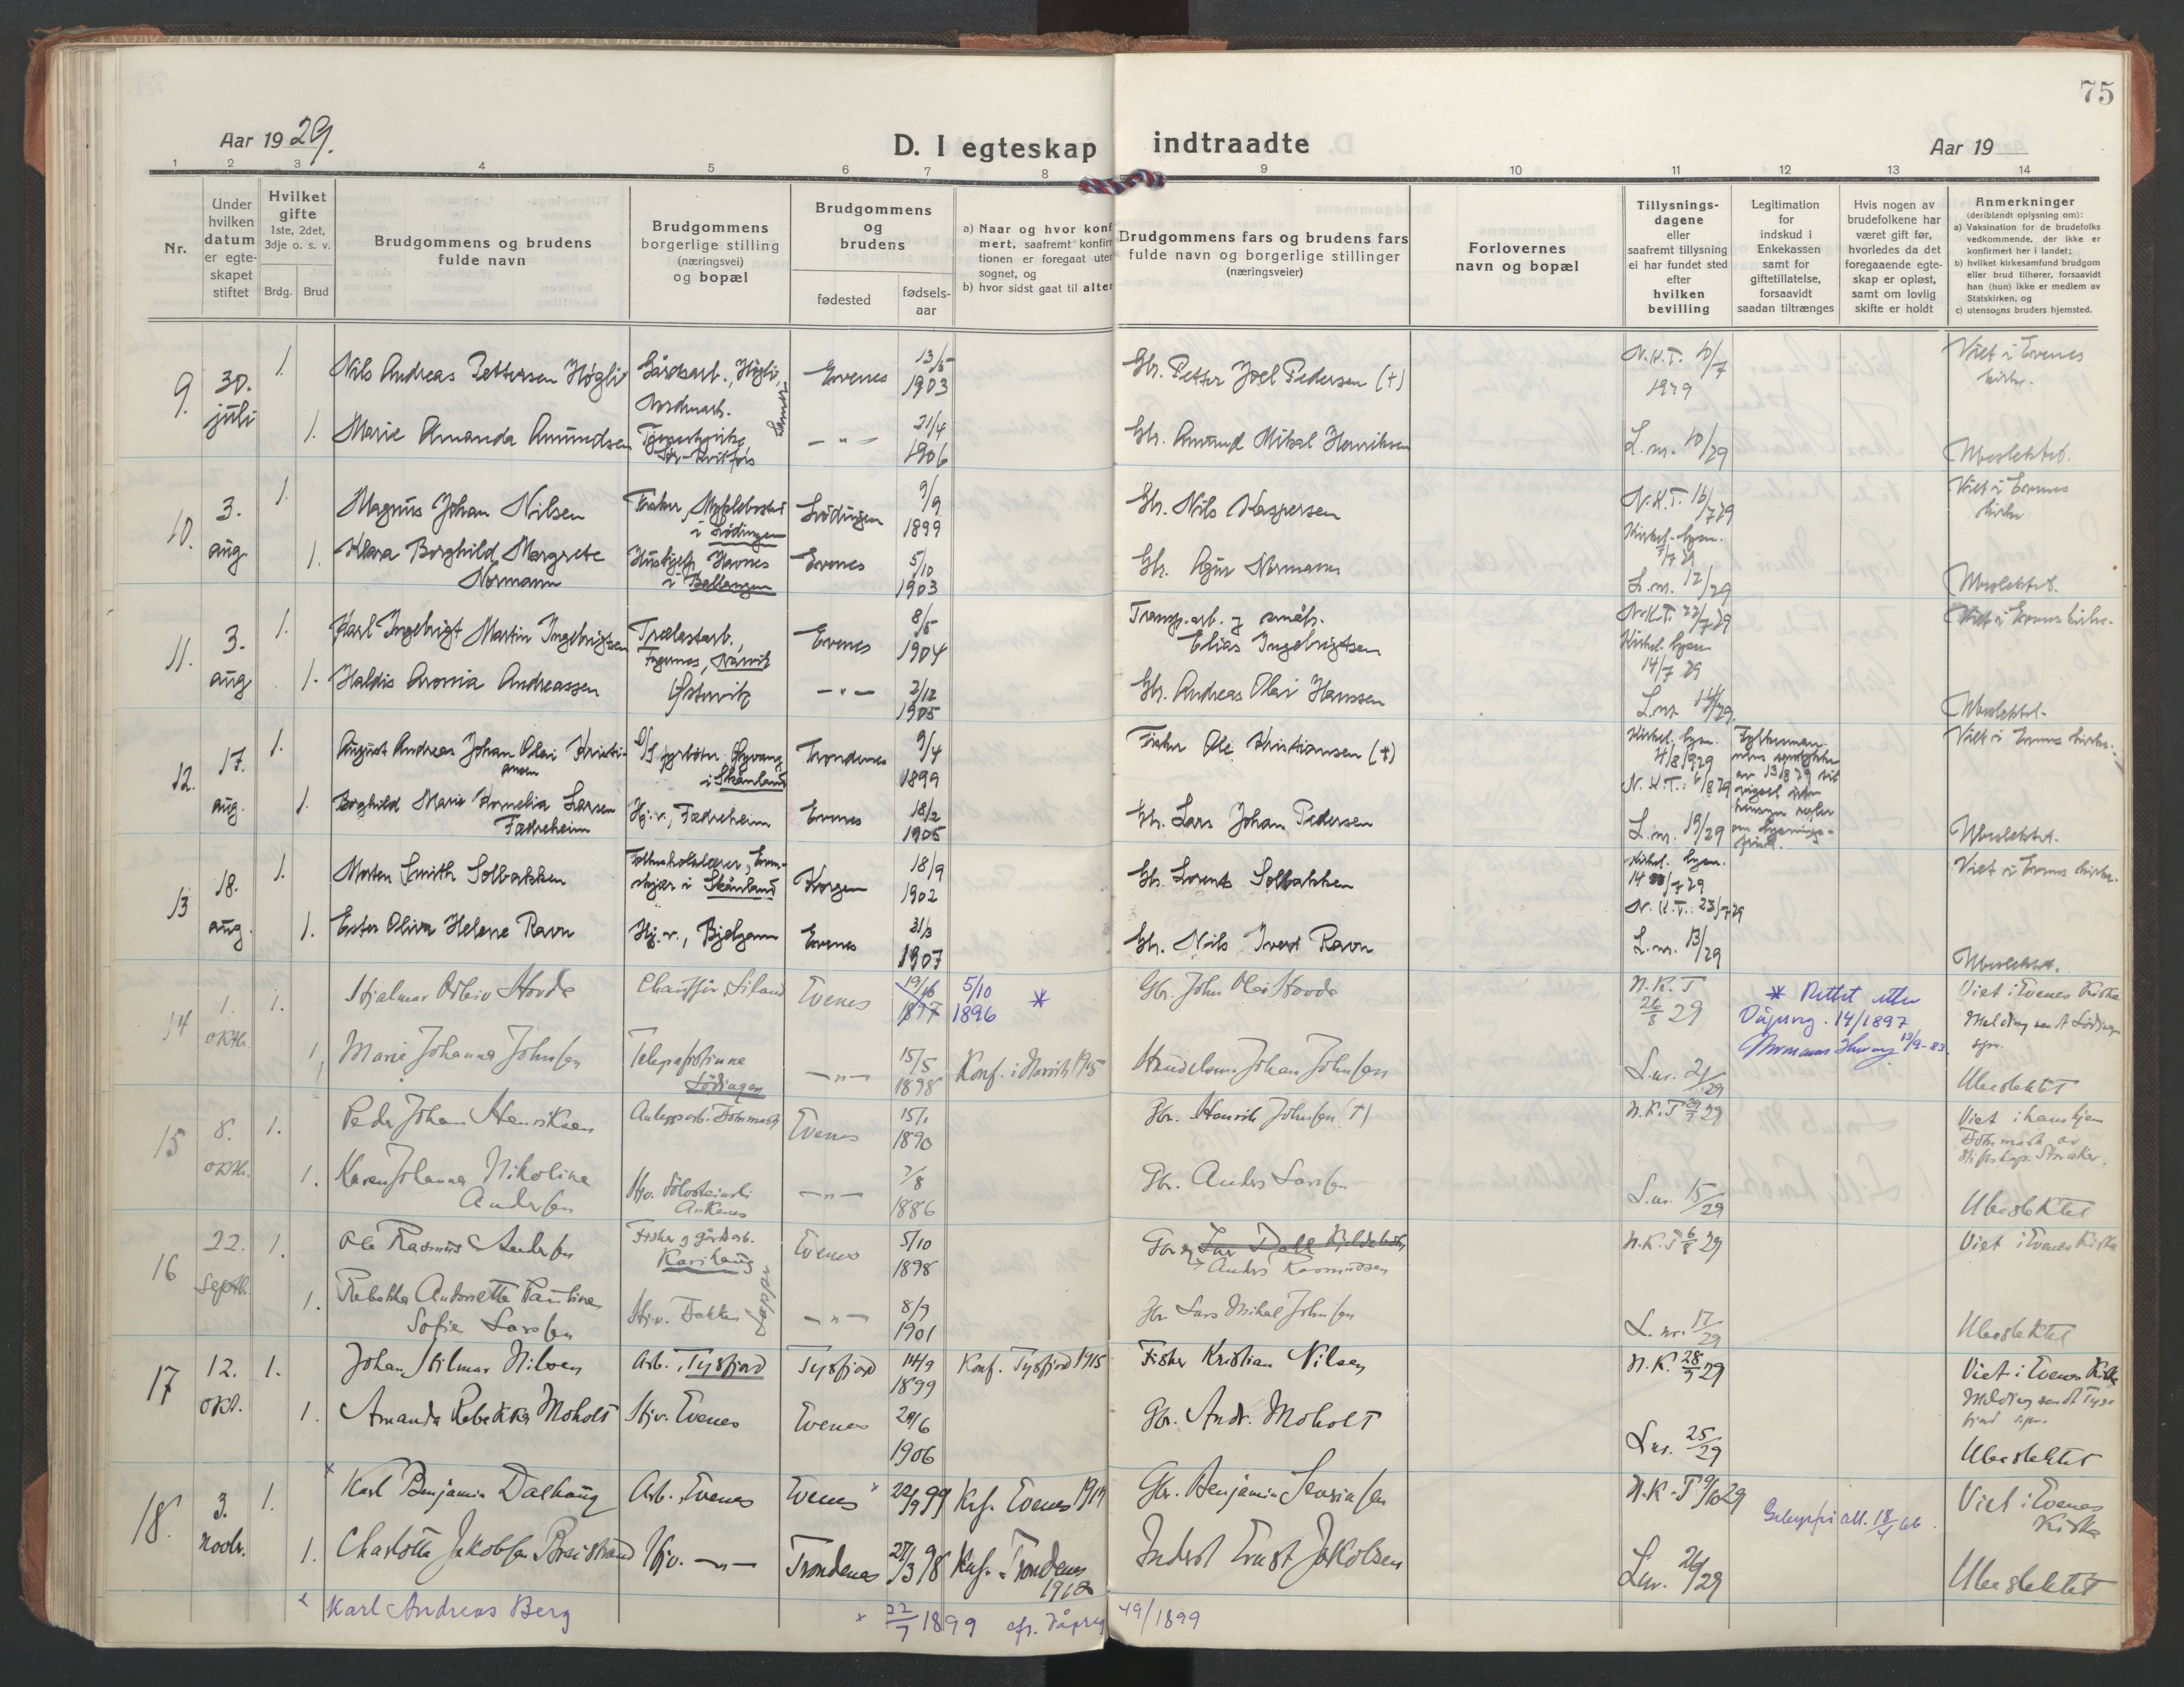 75
Aar 1929.
D. I egteskap indtraadte
Aar 19
1 2 3 4 5 6 7 8 9 10 11 12 13 14
Nr.
Under hvilken datum er egteskapet stiftet
Hvilket gifte 1ste, 2det, 3dje o. s. v.
Brdg. Brud
Brudgommens og brudens fulde navn
Brudgommens borgerlige stilling (næringsvei) og bopæl
Brudgommens og brudens
fødested
fødsels-aar
a) Naar og hvor konf
mert, saafremt konfir
tionen er foregaat uten
sognet, og
b) hvor sidst gaat til alter
Brudgommens fars og brudens fars
fulde navn og borgerlige stillinger
(næringsveier)
Forlovernes
navn og bopæl
Tillysnings-
dagene
eller
saafremt tillysning
ei har fundet sted
efter
hvilken
bevilling
Legitimation
for
indskud i
Enkekassen
samt for
giftetillatelse,
forsaavidt
saadan tiltrænges
Hvis nogen av
brudefolkene har
været gift før,
hvorledes da det
foregaaende egte-
skap er opløst,
samt om lovlig
skifte er holdt
Anmerkninger
(deriblendt oplysning om):
a) Vaksination for de brudefolks
vedkommende, der ikke er
konfirmert her i landet;
b) hvilket kirkesamfund brudgom
eller brud tilhører, forsaavidt
han (hun) ikke er medlem av
Statskirken, og
c) utensogns bruders hjemsted.
9. 30. juli 1. Nils Andreas Pettersen Høgli Gårdsarb., Høgli, Nordmark. Evenes 13/5 1903 Gbr. Petter Joel Pedersen (†) N.K.T. 10/7 1929 Viet i Evenes kirke.
1. Marie Amanda Amundsen Evenes 21/4 1906 Gbr. Amund Mikal Henriksen L.nr. 10/29 Ubeslektet.
10. 3. aug. 1. Magnus Johan Nilsen Fisker, i Lødingen Lødingen 9/9 1899 Gbr. Nils Kaspersen N.K.T. 16/7 29 Viet i Evenes kirke
1. Klara Borghild Margrete Normann Havnes i Ballangen Evenes 5/10 1903 Gbr. Normann Kirkel. lysn. 7/7 29 L.nr. 12/29 Ubeslektet.
11. 3. aug. 1. Karl Ingebrigt Martin Ingebrigtsen Trælastarb., Fagernes, Narvik Evenes 8/5 1904 Transp.arb. og småbr. Elias Ingebrigtsen N.K.T. 22/7 29 Viet i Evenes kirke.
1. Haldis Aronia Andreassen Østervik - " - 2/12 1905 Gbr. Andreas Olai Hanssen Kirkel. lysn 14/7 29 L.nr. 14/29 Ubeslektet.
12. 17. aug. 1. August Andreas Johan Olai Kristiansen i Skånland Trondenes 9/4 1899 Fisker Ole Kristiansen (†) Kirkel. lysn. 4/8 1929 N.K.T.: 6/8 29 Viet i Evenes kirke.
1. Borghild Marie Kornelia Larsen Fædreheim Hj.v., Fædreheim Evenes 18/2 1905 Gbr. Lars Johan Pedersen L.nr. 19/29 Ubeslektet.
13 18. aug. 1. Morten Smith Solbakken i Skånland Korgen 18/9 1902 Gbr. Lorents Solbakken Kirkel. lysn. 14/7 29 N.K.T.: 23/7 29 Viet i Evenes kirke.
1. Ester Oliva Helene Ravn Hj.v., Evenes 31/3 1907 Gbr. Nils Ravn L.nr. 13/29 Ubeslektet.
14 1. oktbr. 1. Hjalmar Hovde Chauffør, Liland Evenes 1897 5/10 1896 * Gbr. John Olai Hovde N.K.T 26/8 29 * Rettet etter Dåpsreg. 14/1897 Viet i Evenes Kirke
1. Marie Johanna Johnsen Telegrafistinne Lødingen - " - 15/5 1898 Konf. i Narvik 1915 Handelsm. Johan Johnsen L.nr. 21/29 Melding sendt Lødingen spr. Ubeslektet
15 8. oktbr. 1. Peder Johan Henriksen Evenes 15/1 1890 Gbr. Henrik Johnsen (†) N.K.T 29 Viet i
1. Karen Johanna Nikoline Andersen Hjv. Ankenes - " - 7/8 1886 Gbr. Anders Larsen L.nr. 15/29 Ubeslektet
16 22. septbr. 1. Ole Rasmus Andersen Fisker og gårdsarb. Karihaug Evenes 5/10 1898 Anders Rasmussen N.K.T 6/8 29 Viet i Evenes Kirke
1. Rebekka Antonette Pauline Sofie Larsen Hjv. lapper - " - 8/9 1901 Gbr Lars Mikal Johnsen L.nr. 17/29 Ubeslektet
17 12. okt. 1. Johan Hilmar Nilsen Arb., Tysfjord Tysfjord 14/9 1899 Konf. Tysfjord 1915 Fisker Kristian Nilsen N.K. 28/9 29 Viet i Evenes Kirke
1. Amanda Rebekka Moholt Hjv. Evenes Evenes 29/6 1906 Gbr. Andr. Moholt L.nr. 25/29 Melding sendt Tysfjord spr. Ubeslektet
18. 3. novbr. 1. x Karl Benjamin Dalhaug Arb. Evenes Evenes x 22/9 99 Knf. Evenes 1914 Gbr. Benjamin Sevrinsen N.K.T 9/10 29 Viet i Evenes Kirke
1. Charlotte Jakobsen Breistrand Hjv. - " - Trondenes 27/3 98 Knf. Trondenes 1912 Inderst Ernst Jakobsen L.nr. 26/29 Ubeslektet
x Karl Andreas Berg x 22/7 1899 cfr. dåpsreg 49/1899